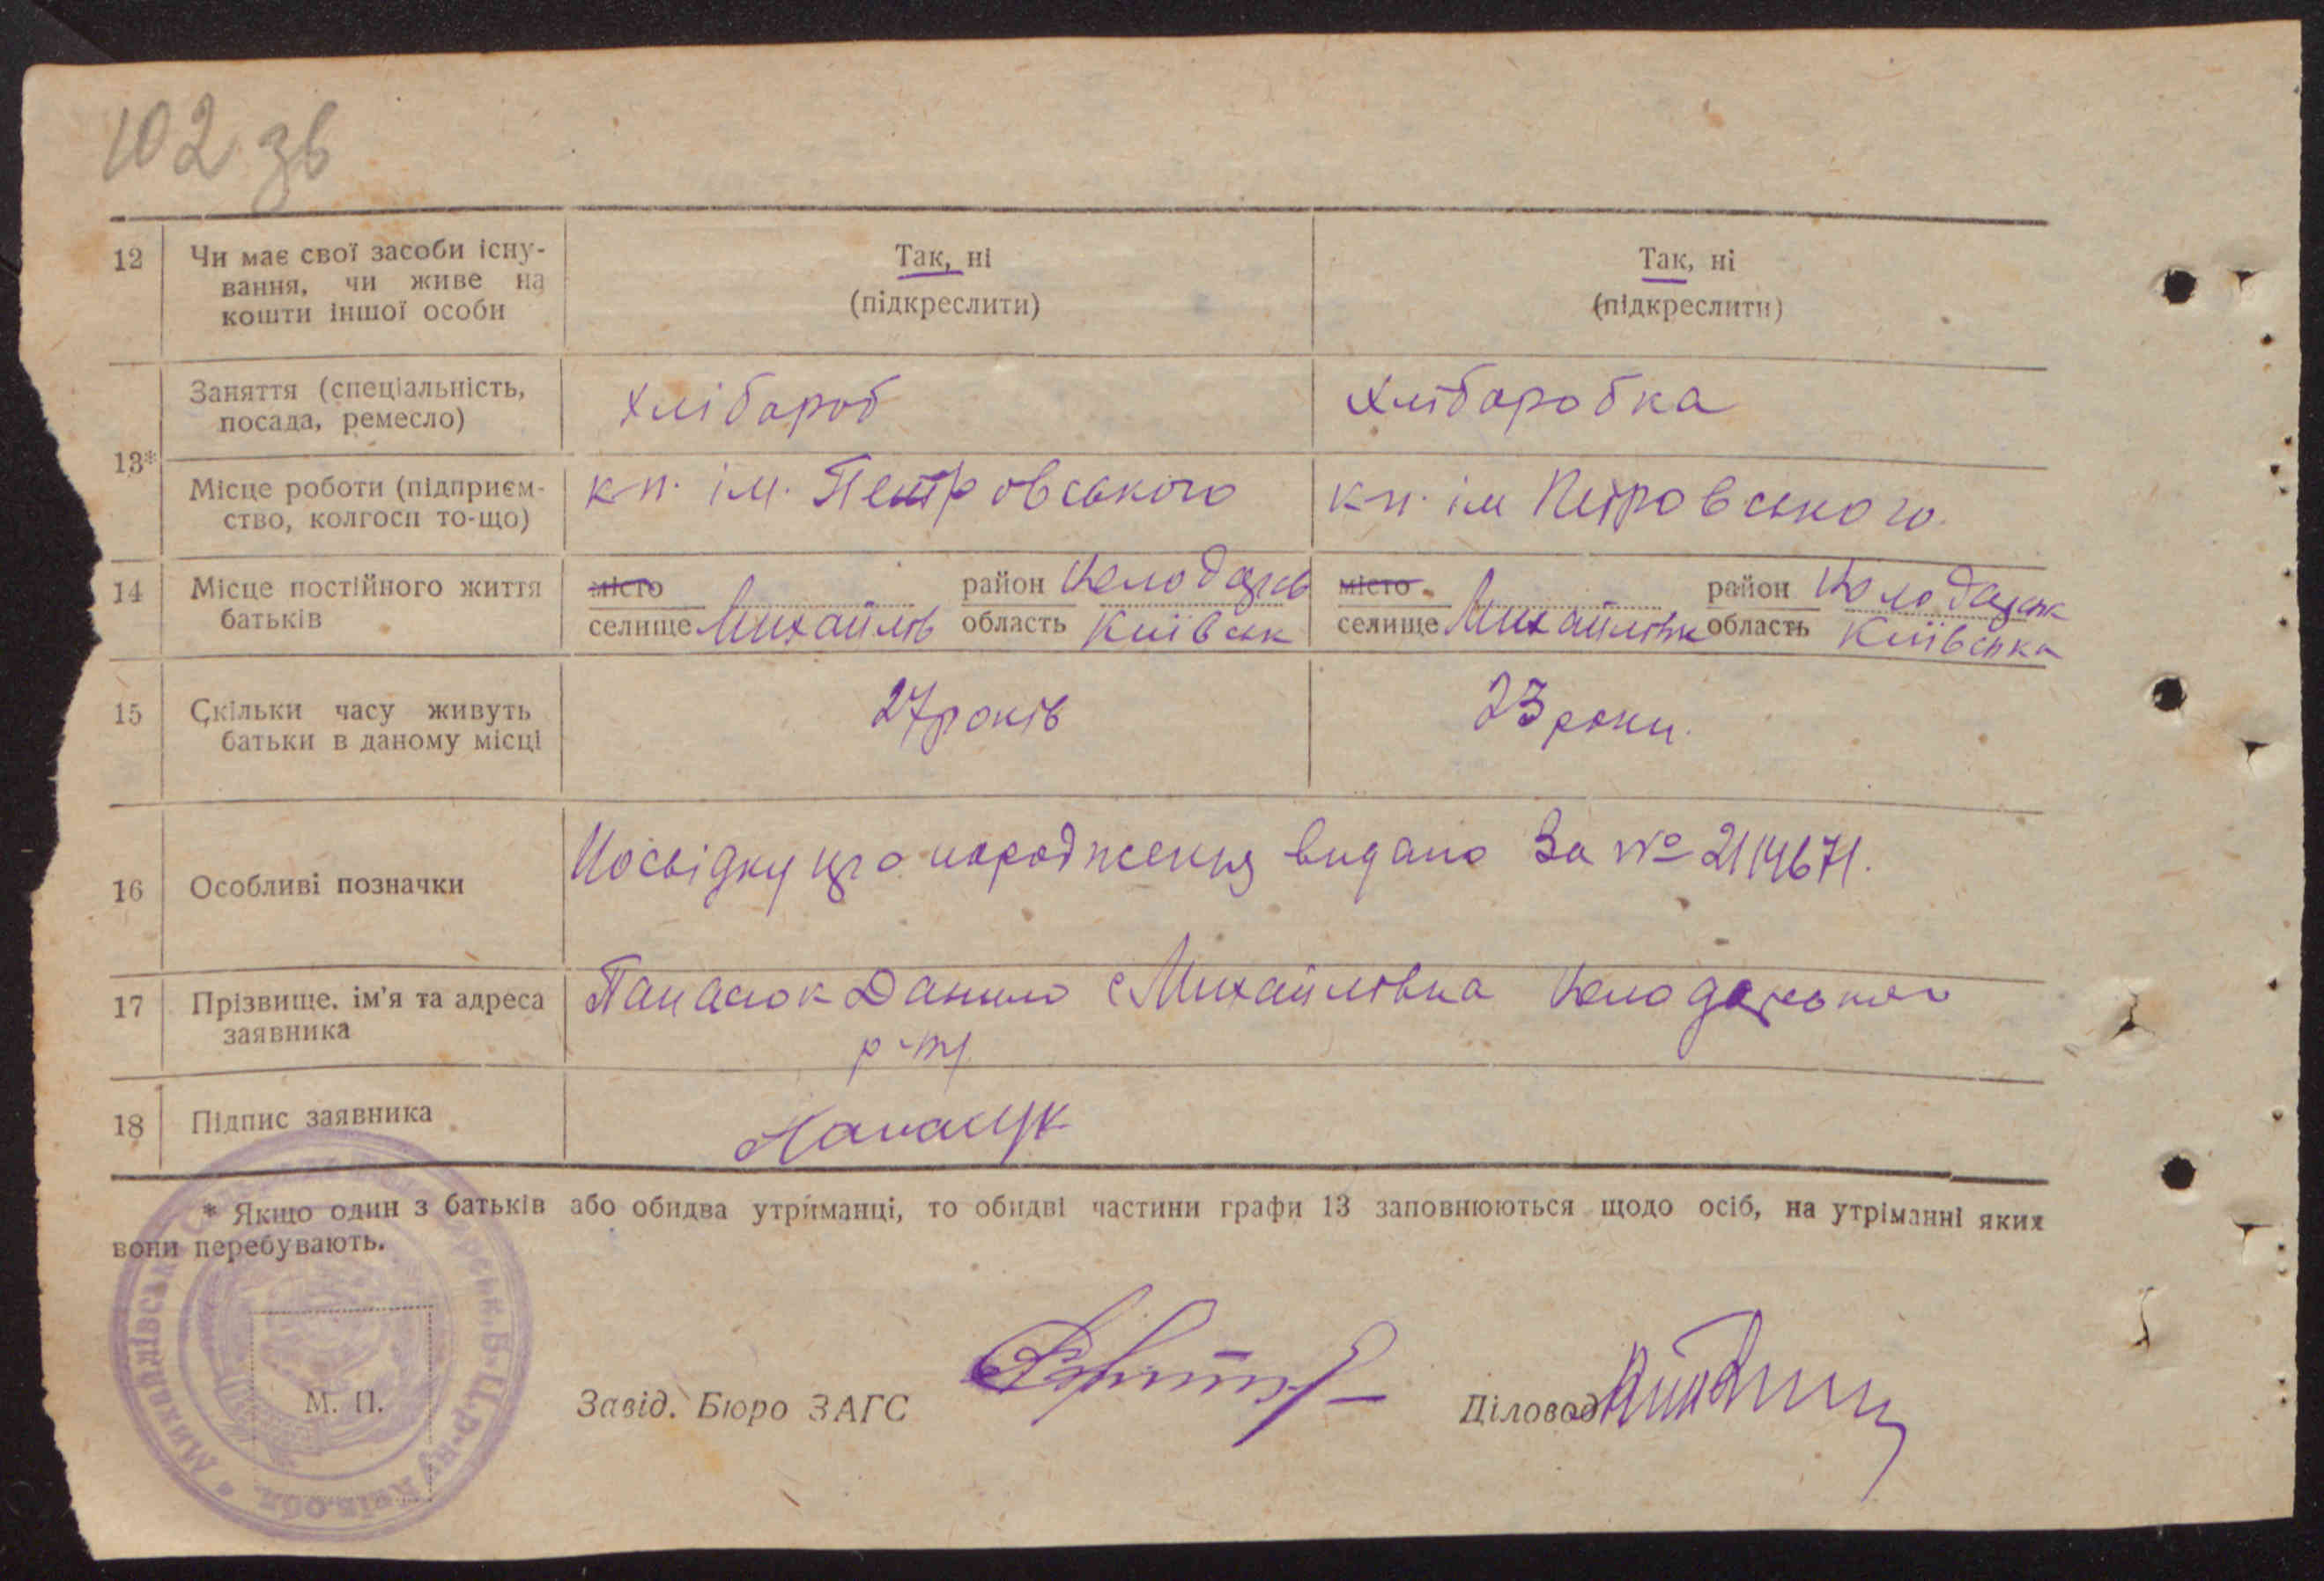 102 зв
12 Чи має свої засоби існу- Так, ні Так, ні
вання, чи живе на (підкреслити) (підкреслити)
кошти іншої особи
13* Заняття (спеціальність, хлібароб хлібаробка
посада, ремесло)
Місце роботи (підприєм- кп. ім. Петровського кп. ім Петровського.
ство, колгосп то-що)
14 Місце постійного життя місто район місто район
батьків селище Михайлів область Київськ селище Михайлівк область Київська
15 Скільки часу живуть 27 років 23 роки.
батьки в даному місці
16 Особливі позначки Посвідку про народження видано За № 2114671.
17 Прізвище, ім'я та адреса Панасюк Данило с Михайлівка
заявника р-ну
18 Підпис заявника Панасюк
* Якщо один з батьків або обидва утриманці, то обидві частини графи 13 заповнюються щодо осіб, на утріманні яких
вони перебувають.
М. П. Завід. Бюро ЗАГС Діловод